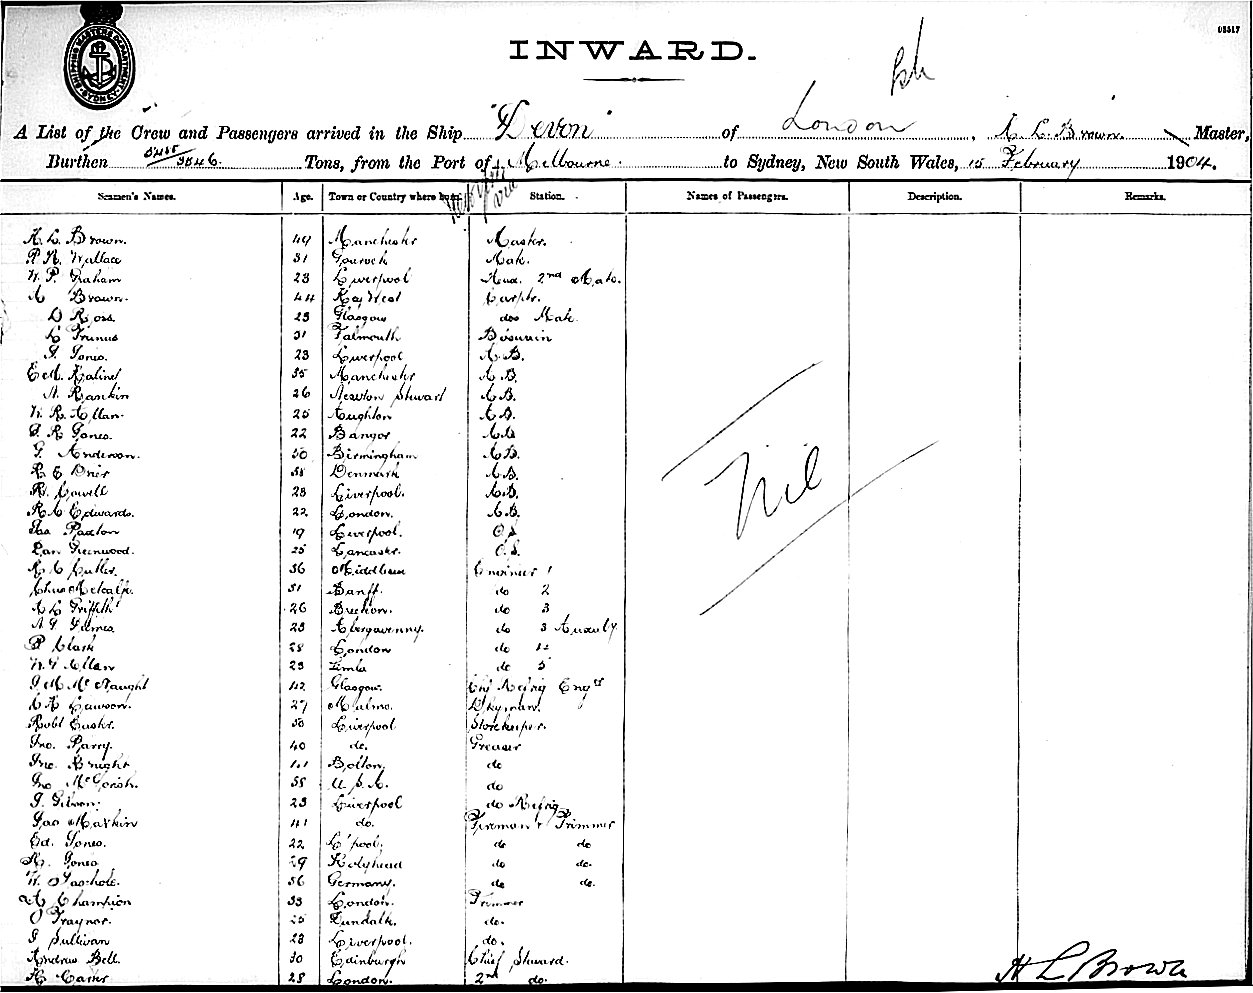 03517
SHIPPING MASTER'S DEPARTMENT SYDNEY
INWARD.
A List of the Crew and Passengers arrived in the Ship "Devon" of London, H. L. Brown. Master,
Burthen 3546. Tons, from the Port of Melbourne. to Sydney, New South Wales, 15 February 1904.
Seamen's Names. Age. Town or Country where born. Station. Names of Passengers. Description. Remarks.
H. L. Brown. 49 Manchester Master.
Wallace 31 Gourock Mate.
W. P. Graham 23 Liverpool 2nd Mate.
Brown. 44 Key West Carptr.
D Ross. 23 Glasgow do Mate
31 Falmouth Bosuwin
Jones. 23 Liverpool A.B.
35 Manchester A.B.
Rankin 26 Newton Stewart A.B.
W. R. Allan. 25 Aughton A.B.
J. R. Jones. 22 Bangor A.B.
G. Anderson. 50 Birmingham A.B.
Denmark A.B.
R. Cowell 23 Liverpool. A.B.
Edwards. 22 London. A.B.
Jas Paxton 19 Liverpool. O.S.
Dan Greenwood. 25 Lancaster. O.S.
Cutler. 36 Engineer 1
Chas Metcalfe. 31 Banff. do 2
Griffiths 26 Brecon. do 3
James. 23 Abergavenny. do 3
P Clark 28 London do 4
Allan 23 do 5
J. M. McNaught 42 Glasgow. Chf Refrig Engr
Lawson. 27 Malmo. Dkyman.
Robt 50 Liverpool Storekeeper.
Jno. Parry. 40 do. Greaser
Jno. Knight Bolton. do
Jno McGorish. U.S.A. do
J. Gibson. 23 Liverpool do Refrig
Jas Markin 41 do. Fireman & Trimmer
Ed. Jones. 22 L'pool. do do
Jones 29 Holyhead do do.
W. 56 Germany. do do.
Champion 33 London. Trimmer
O Traynor. 25 Dundalk. do.
J Sullivan 23 Liverpool. do.
Andrew Bell. 30 Edinburgh Chief Steward.
Carter 28 London. 2nd do.
Nil
H L Brown